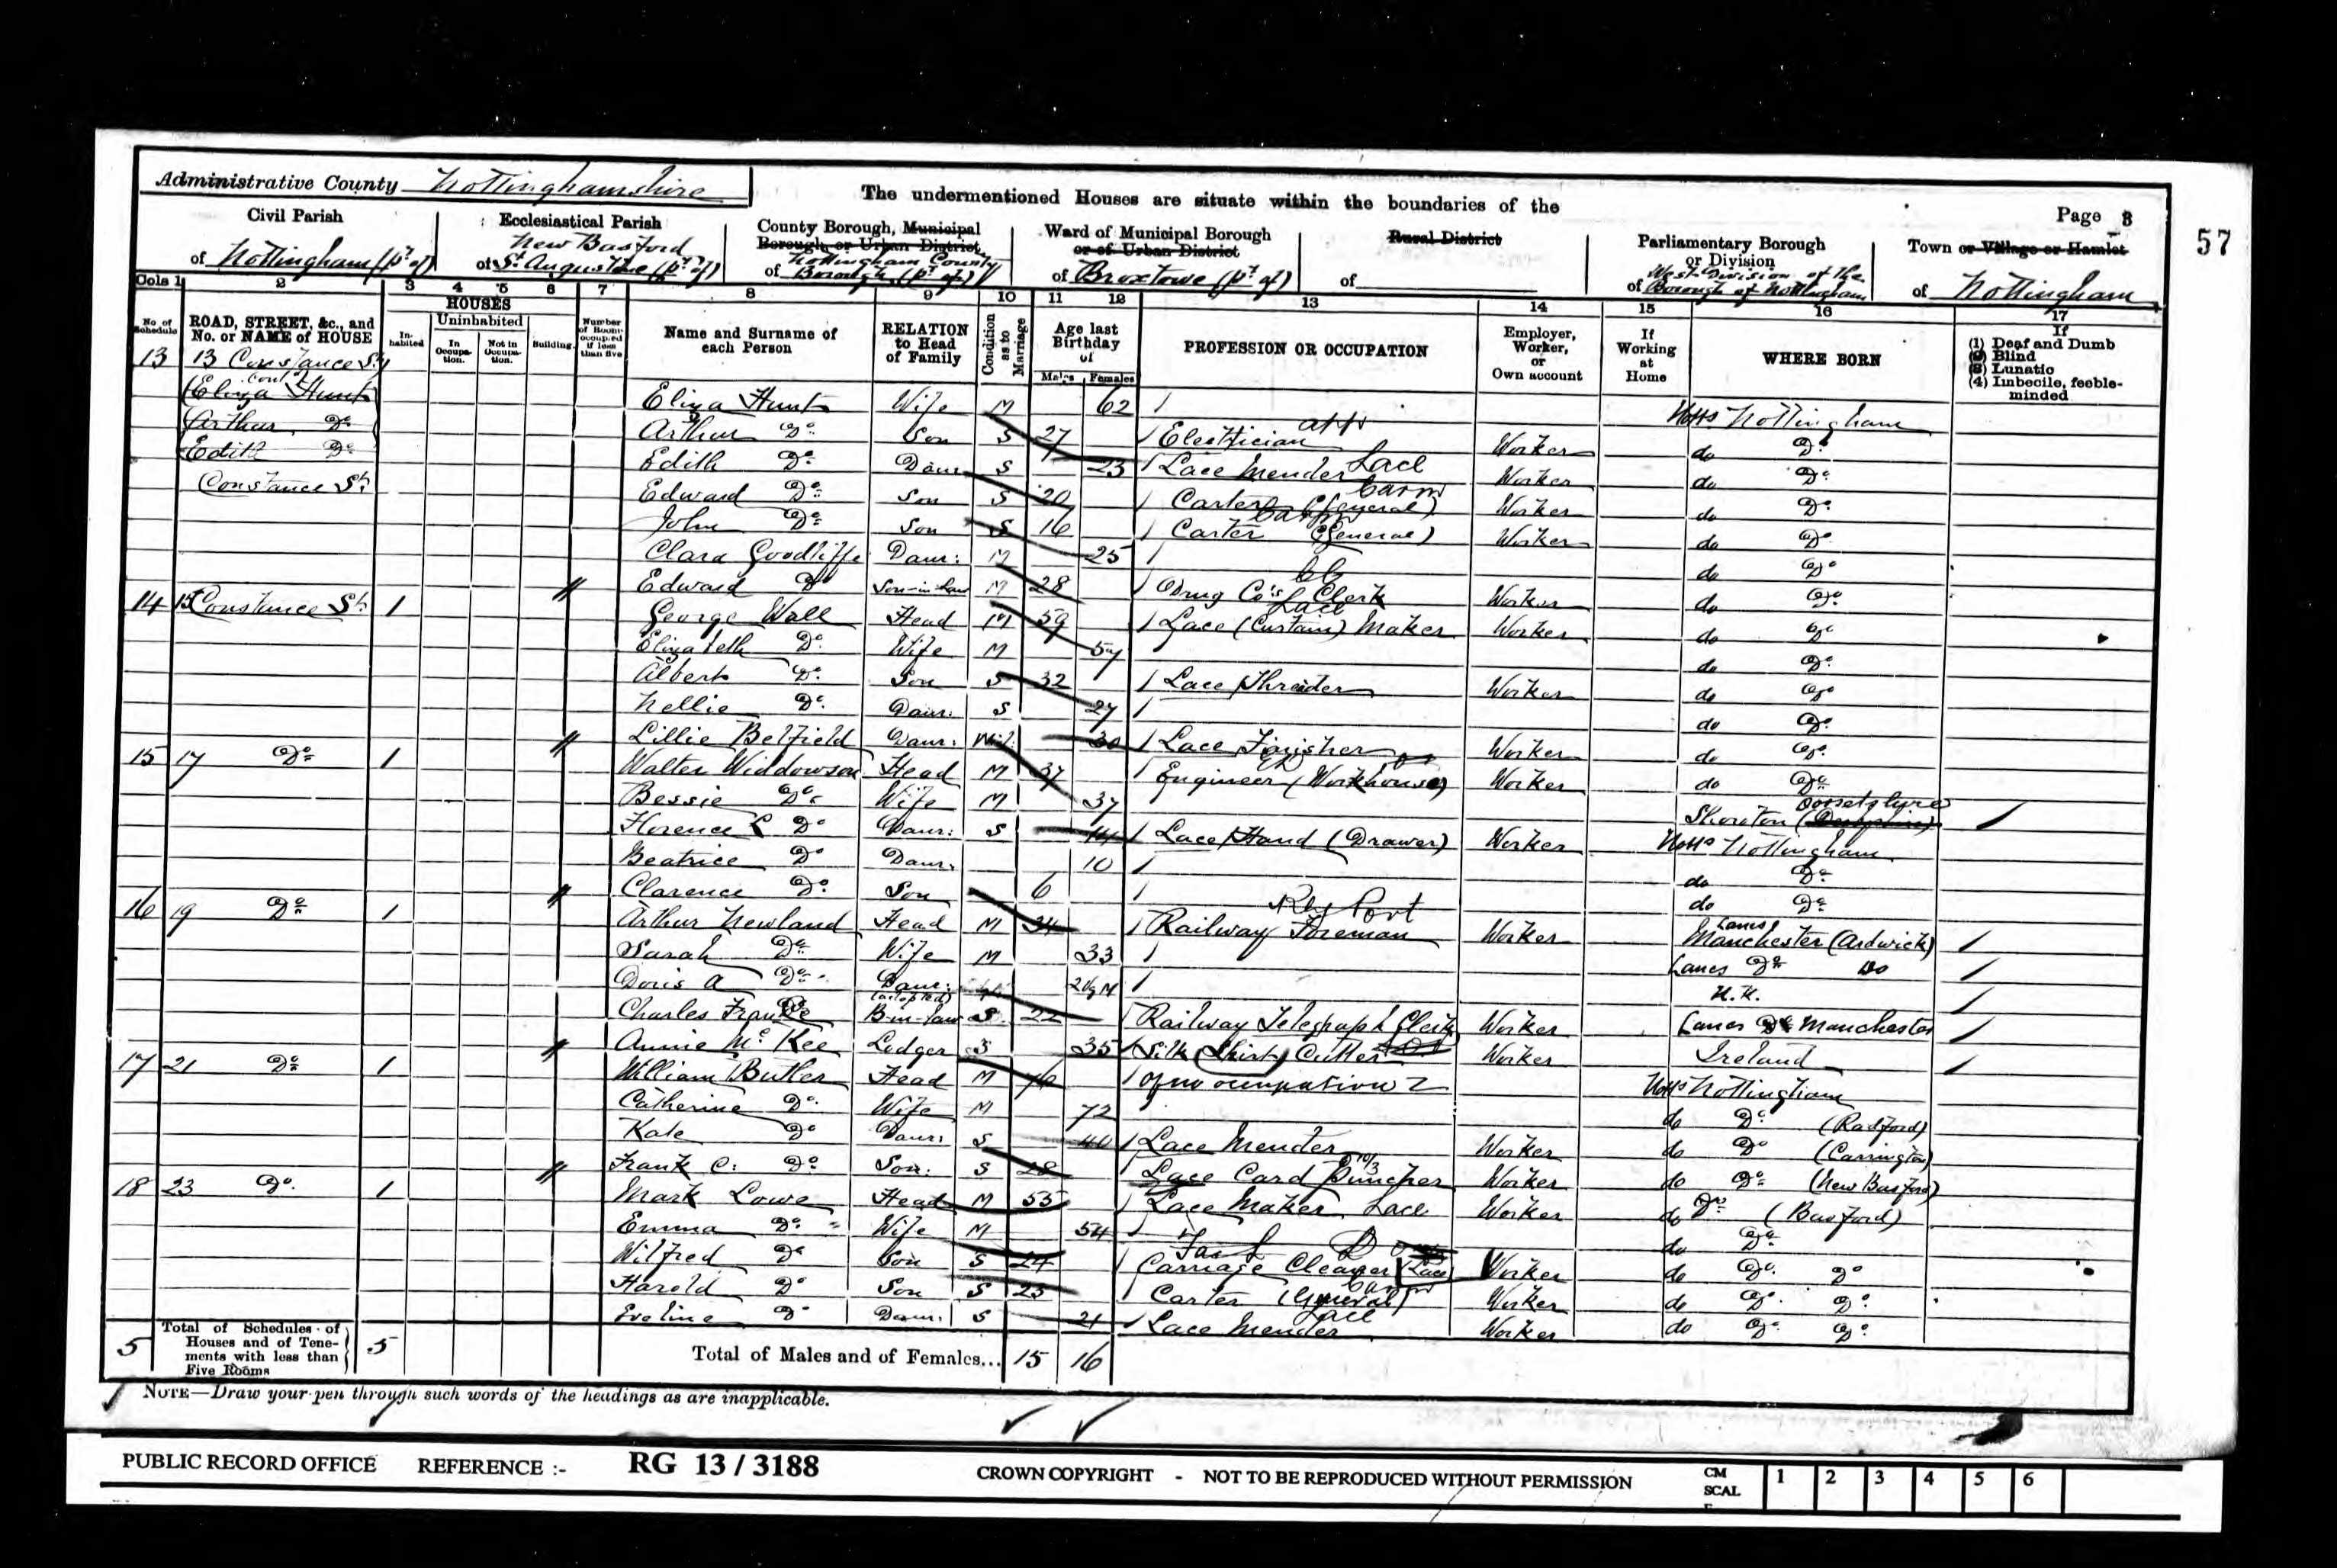 Administrative County Nottinghamshire
The undermentioned Houses are situate within the boundaries of the
Page 8
57
Civil Parish
of Nottingham (pt of)
Ecclesiastical Parish
New Basford
of St Augustine (pt of)
County Borough, Municipal
Borough or Urban District
Nottingham County
of Borough (pt of)
Ward of Municipal Borough
or of Urban District
of Broxtowe (pt of)
Rural District
of
Parliamentary Borough
or Division
West Division of the
of Borough of Nottingham
Town or Village or Hamlet
of Nottingham
Cols 1 2 3 4 5 6 7 8 9 10 11 12 13 14 15 16 17
No of Schedule
ROAD, STREET, &c., and No. or NAME of HOUSE
HOUSES
Inhabited
Uninhabited
In Occupation.
Not in Occupation.
Building.
Number of Rooms occupied if less than five
Name and Surname of each Person
RELATION to Head of Family
Condition as to Marriage
Age last Birthday of
Males Females
PROFESSION OR OCCUPATION
Employer, Worker, or Own account
If Working at Home
WHERE BORN
If
(1) Deaf and Dumb
(2) Blind
(3) Lunatic
(4) Imbecile, feeble-minded
13 13 Constance St
cont
(Eliza Hunt Eliza Hunt Wife M 62 Notts Nottingham
(Arthur Do Arthur Do Son S 27 Electrician Worker do Do
(Edith Do Edith Do Daur S 23 Lace Mender Lace Worker do Do
Constance St. Edward Do Son S 20 Carter (General) Worker do Do
John Do Son S 16 Carter (General) Worker do Do
Clara Goodliffe Daur: M 25 do Do
Edward Do Son-in-law M 28 Drug Co's Clerk Worker do Do
14 15 Constance St. 1 George Wall Head M 59 Lace (Curtain) Maker Worker do Do
Elizabeth Do Wife M 57 do Do
Albert Do Son S 32 Lace Threader Worker do Do
Nellie Do Daur: S 27 do Do
Lillie Belfield Daur: Wid: 30 Lace Finisher Worker do Do
15 17 Do 1 Walter Widdowson Head M 37 Engineer (Workhouse) Worker do Do
Bessie Do Wife M 37 Dorsetshire
Florence L Do Daur: S 14 Lace Hand (Drawer) Worker Notts Nottingham
Beatrice Do Daur: 10 do Do
Clarence Do Son 6 do Do
16 19 Do 1 Arthur Newland Head M 34 Railway Foreman Worker Lancs Manchester (Ardwick)
Sarah Do Wife M 33 Lancs Do Do
Doris A Do Daur: (adopted) N.K.
Charles Franke B-in-law S 22 Railway Telegraph Clerk Worker Lancs Manchester
Annie McKee Lodger S 35 Silk (Shirt) Cutter Worker Ireland
17 21 Do 1 William Butler Head M 76 Of no occupation Notts Nottingham
Catherine Do Wife M 72 do Do (Radford)
Kate Do Daur: S 40 Lace Mender Worker do Do (Carrington)
Frank C: Do Son: S 28 Lace Card Puncher Worker do Do (New Basford)
18 23 Do. 1 Mark Lowe Head M 55 Lace Maker Lace Worker do Do (Basford)
Emma Do Wife M 54 do Do
Wilfred Do Son S 24 Carriage Cleaner Worker do Do Do
Harold Do Son S 23 Carter (General) Worker do Do Do
Eveline Do Daur: S 21 Lace Mender Lace Worker do Do Do
5 Total of Schedules of Houses and of Tenements with less than Five Rooms 5 Total of Males and of Females... 15 16
NOTE—Draw your pen through such words of the headings as are inapplicable.
PUBLIC RECORD OFFICE REFERENCE :- RG 13 / 3188 CROWN COPYRIGHT - NOT TO BE REPRODUCED WITHOUT PERMISSION CM SCAL 1 2 3 4 5 6